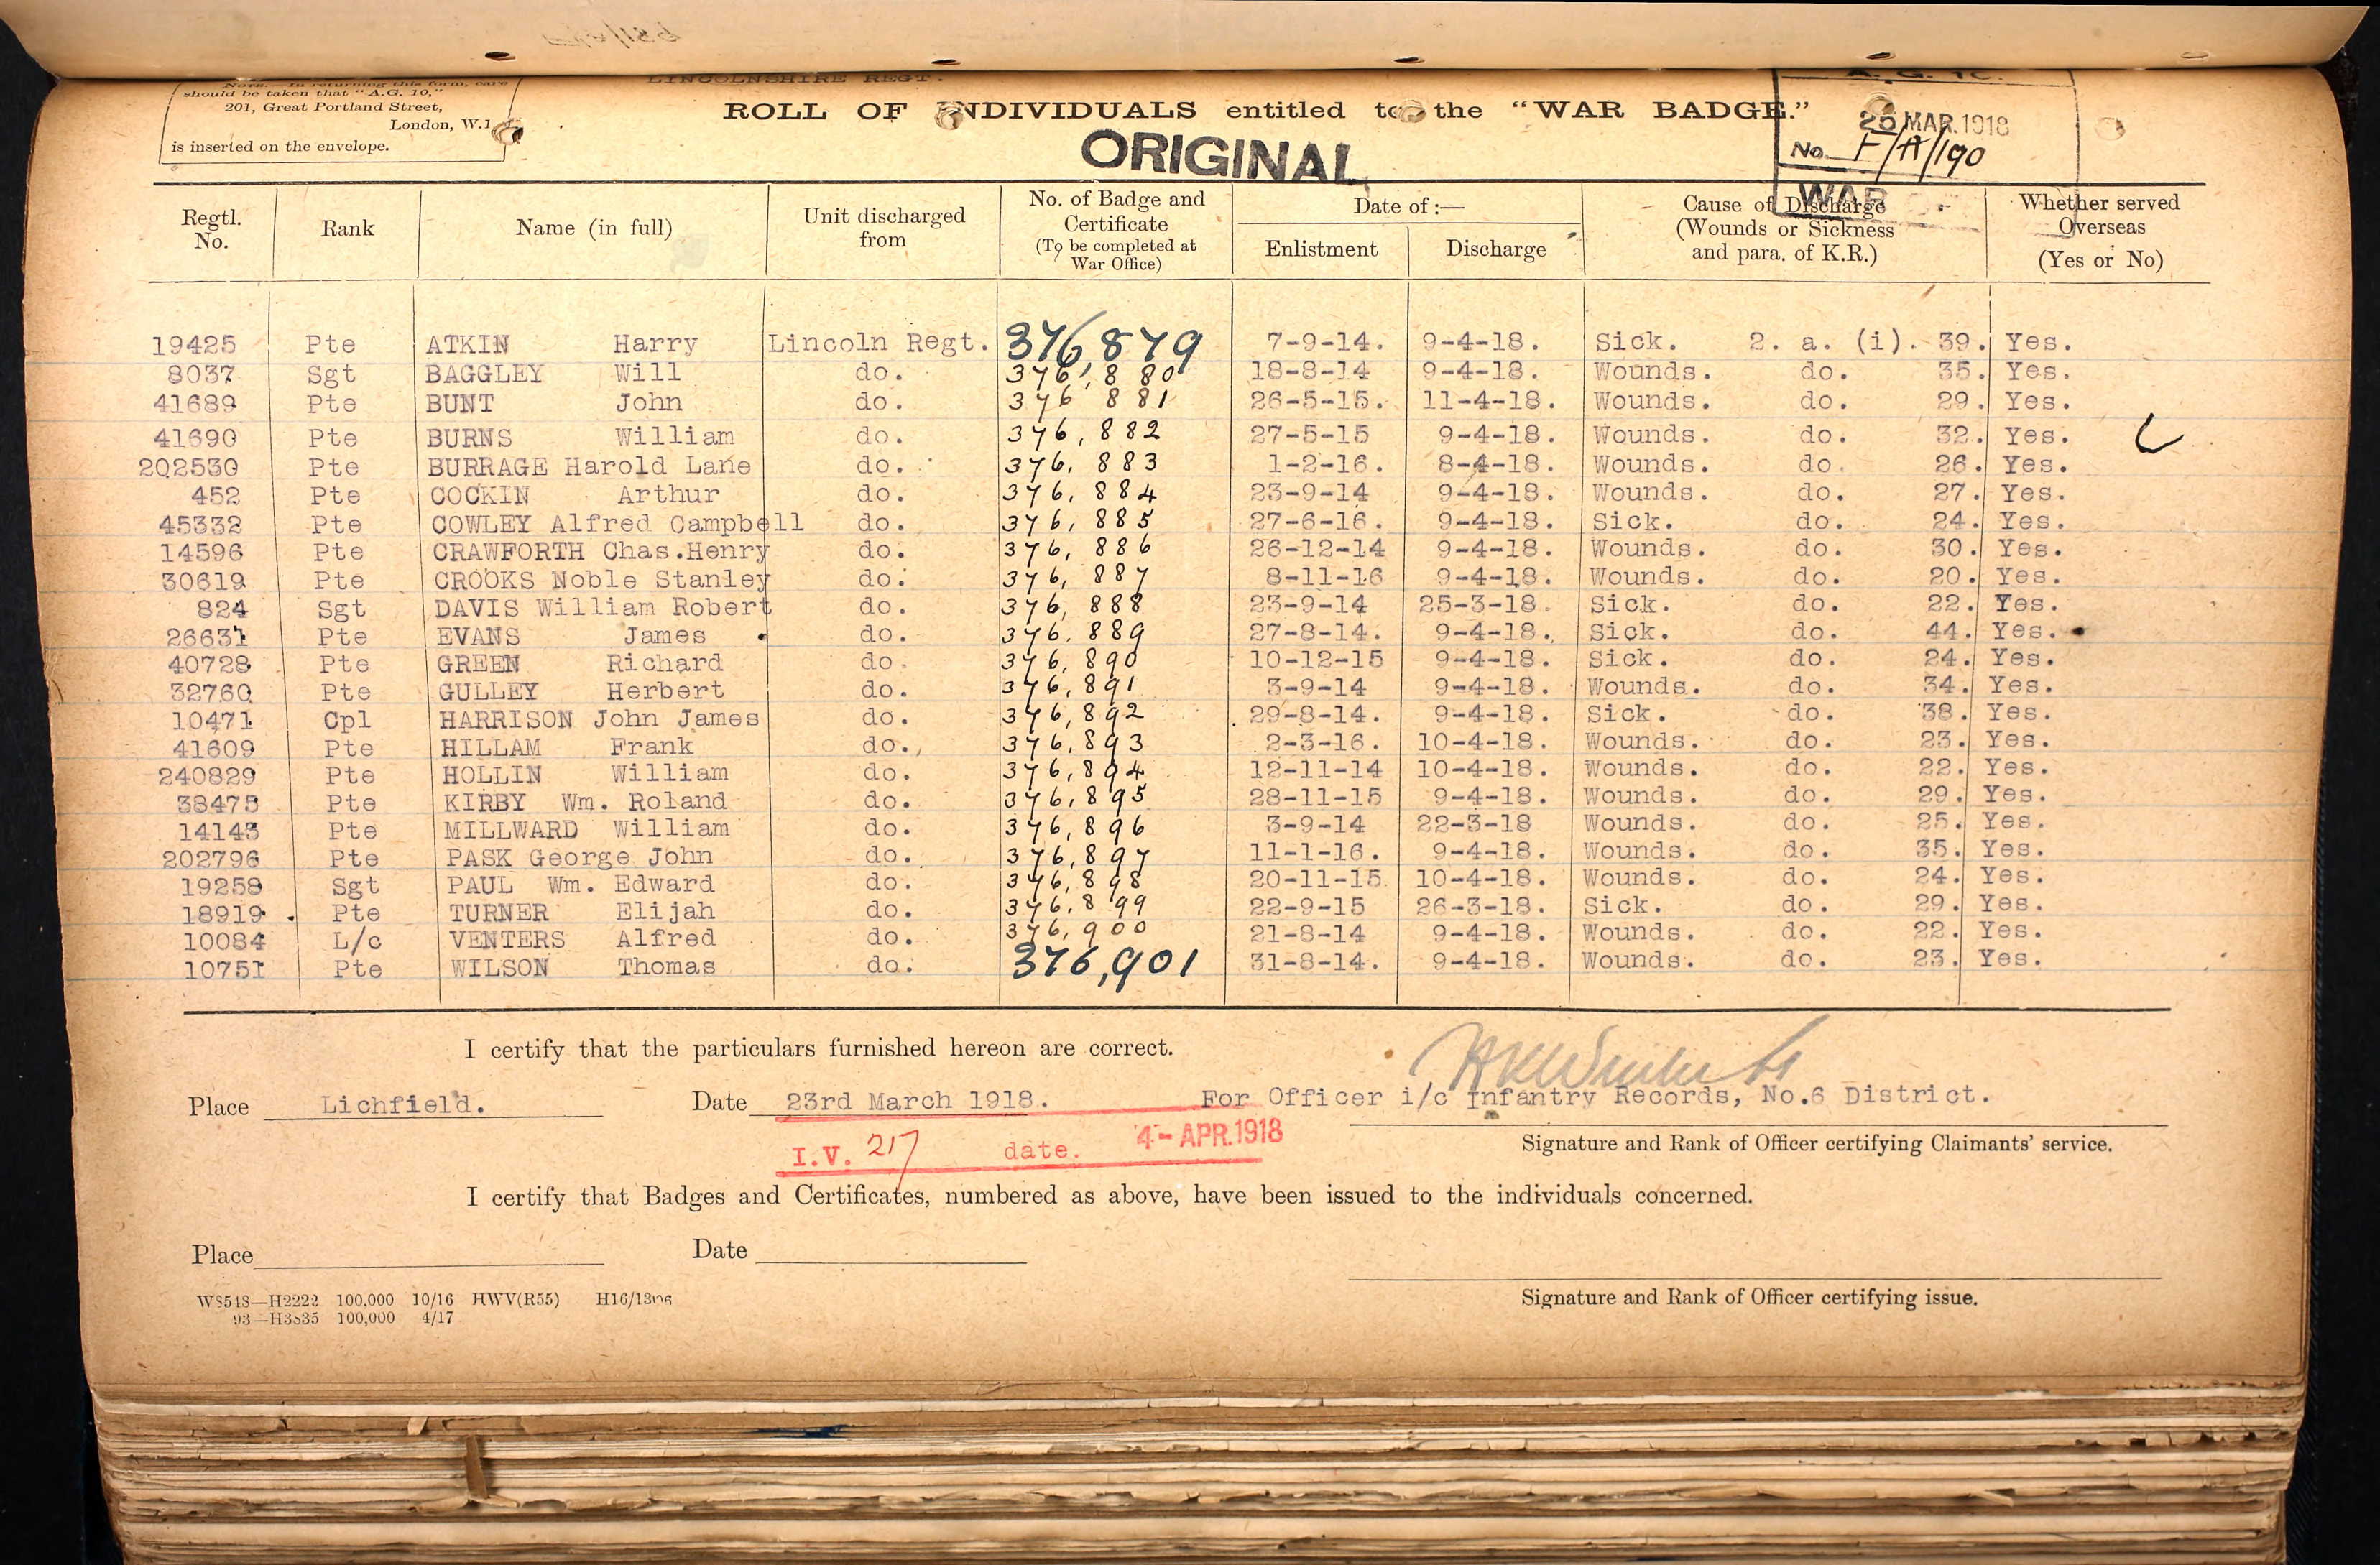 LINCOLNSHIRE REGT.
NOTE.—In returning this form, care
should be taken that "A.G. 10,"
201, Great Portland Street,
London, W.1
is inserted on the envelope.
ROLL OF INDIVIDUALS entitled to the "WAR BADGE."
ORIGINAL
A.G. 10.
26 MAR. 1918
No. F/A/190
WAR
Regtl. No. Rank Name (in full) Unit discharged from No. of Badge and Certificate (To be completed at War Office) Date of :— Enlistment Discharge Cause of Discharge (Wounds or Sickness and para. of K.R.) Whether served Overseas (Yes or No)
19425 Pte ATKIN Harry Lincoln Regt. 376,879 7-9-14. 9-4-18. Sick. 2. a. (i). 39. Yes.
8037 Sgt BAGGLEY Will do. 376,880 18-8-14 9-4-18. Wounds. do. 35. Yes.
41689 Pte BUNT John do. 376 881 26-5-15. 11-4-18. Wounds. do. 29. Yes.
41690 Pte BURNS William do. 376,882 27-5-15 9-4-18. Wounds. do. 32. Yes.
202530 Pte BURRAGE Harold Lane do. 376,883 1-2-16. 8-4-18. Wounds. do. 26. Yes.
452 Pte COCKIN Arthur do. 376,884 23-9-14 9-4-18. Wounds. do. 27. Yes.
45332 Pte COWLEY Alfred Campbell do. 376,885 27-6-16. 9-4-18. Sick. do. 24. Yes.
14596 Pte CRAWFORTH Chas.Henry do. 376,886 26-12-14 9-4-18. Wounds. do. 30. Yes.
30619 Pte CROOKS Noble Stanley do. 376,887 8-11-16 9-4-18. Wounds. do. 20. Yes.
824 Sgt DAVIS William Robert do. 376,888 23-9-14 25-3-18. Sick. do. 22. Yes.
26631 Pte EVANS James do. 376.889 27-8-14. 9-4-18. Sick. do. 44. Yes.
40728 Pte GREEN Richard do. 376,890 10-12-15 9-4-18. Sick. do. 24. Yes.
32760 Pte GULLEY Herbert do. 376,891 3-9-14 9-4-18. Wounds. do. 34. Yes.
10471 Cpl HARRISON John James do. 376,892 29-8-14. 9-4-18. Sick. do. 38. Yes.
41609 Pte HILLAM Frank do. 376,893 2-3-16. 10-4-18. Wounds. do. 23. Yes.
240829 Pte HOLLIN William do. 376,894 12-11-14 10-4-18. Wounds. do. 22. Yes.
38475 Pte KIRBY Wm. Roland do. 376,895 28-11-15 9-4-18. Wounds. do. 29. Yes.
14143 Pte MILLWARD William do. 376,896 3-9-14 22-3-18 Wounds. do. 25. Yes.
202796 Pte PASK George John do. 376,897 11-1-16. 9-4-18. Wounds. do. 35. Yes.
19258 Sgt PAUL Wm. Edward do. 376,898 20-11-15 10-4-18. Wounds. do. 24. Yes.
18919 Pte TURNER Elijah do. 376,899 22-9-15 26-3-18. Sick. do. 29. Yes.
10084 L/c VENTERS Alfred do. 376,900 21-8-14 9-4-18. Wounds. do. 22. Yes.
10751 Pte WILSON Thomas do. 376,901 31-8-14. 9-4-18. Wounds. do. 23. Yes.
I certify that the particulars furnished hereon are correct.
Place Lichfield. Date 23rd March 1918. For Officer i/c Infantry Records, No.6 District.
Signature and Rank of Officer certifying Claimants' service.
I.V. 217 date. 4- APR.1918
I certify that Badges and Certificates, numbered as above, have been issued to the individuals concerned.
Place Date
Signature and Rank of Officer certifying issue.
W8548—H2222 100,000 10/16 HWV(R55)
93—H3835 100,000 4/17